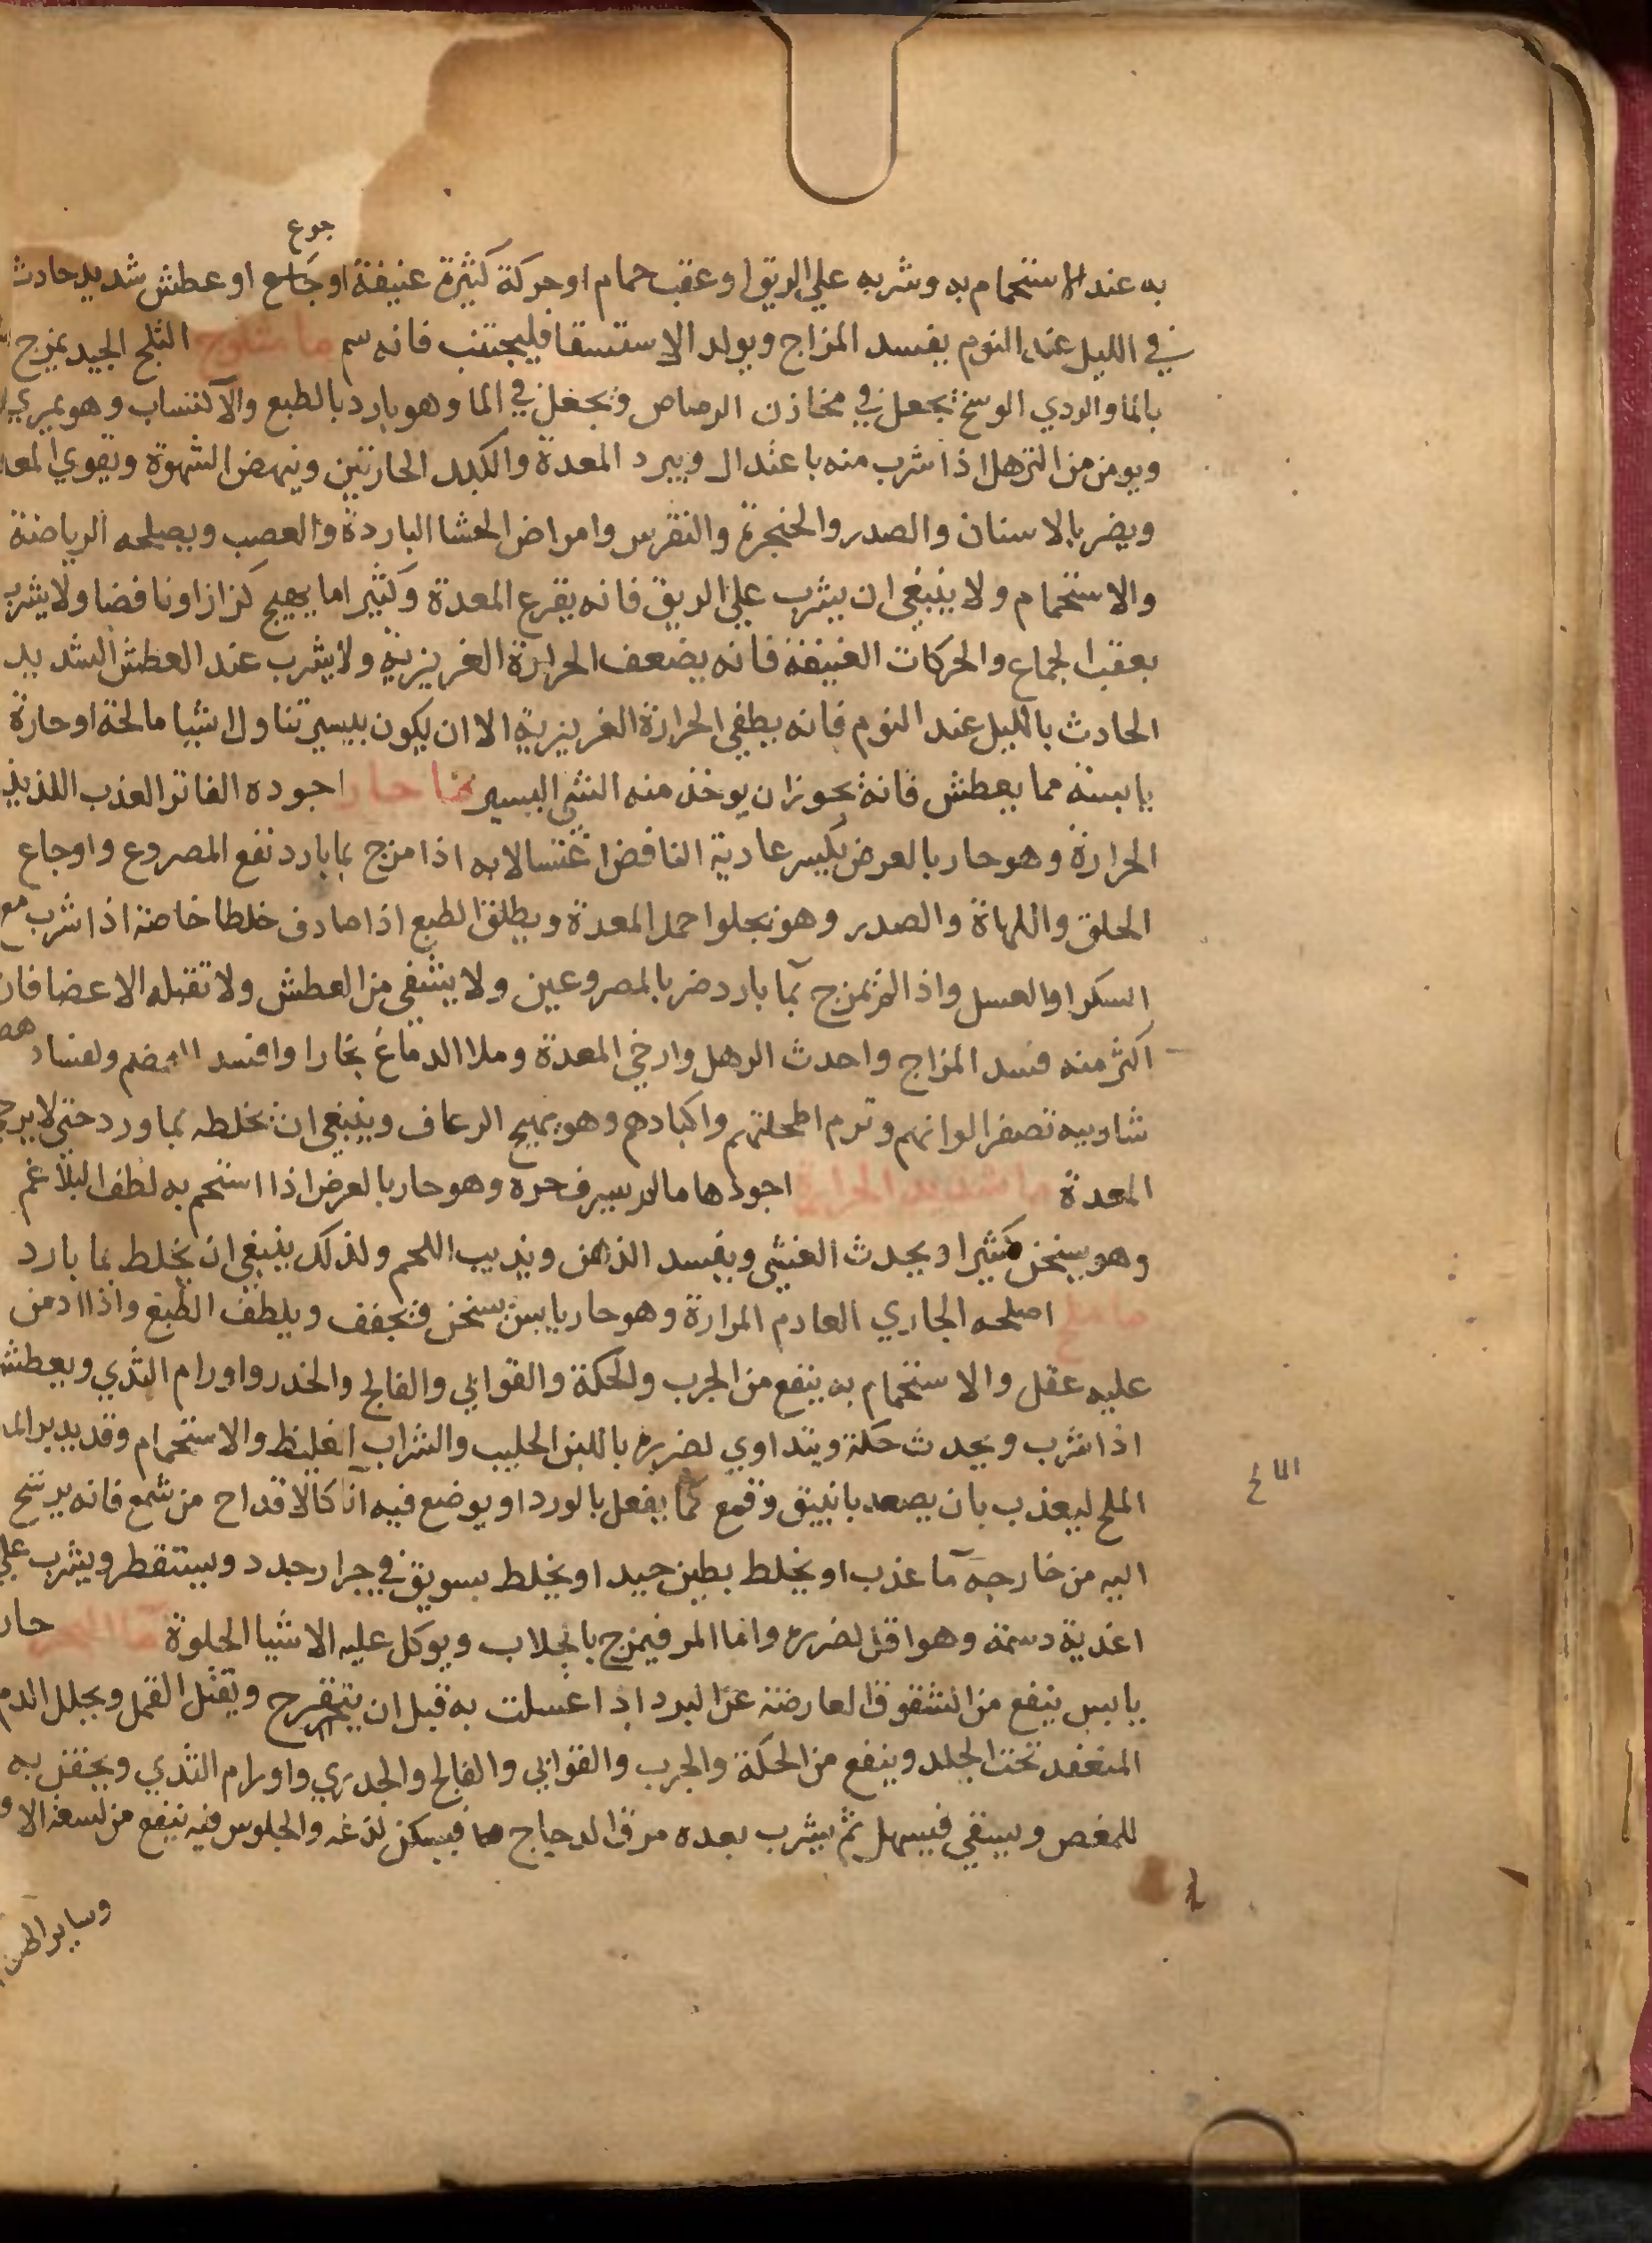 جوع
به عند الاستحمام به وشربه علي الريق او عقب حمام او حركة كثيرة عنيفة او جماع او عطش شديد حادث
في الليل عند النوم يفسد المزاج ويولد الاستسقا فليجتنب فانه سم ما مثلوج الثلج الجيد يمزج
بالما والردي الوسخ يجعل في مخازن الرصاص وتجعل في الما وهو بارد بالطبع والاكتساب وهو يمري
ويومن من الترهل اذا شرب منه باعتدال ويبرد المعدة والكبد الحارتين وينهض الشهوة ويقوي المعد
ويضر بالاسنان والصدر والحنجرة والنقرس وامراض الحشا الباردة والعصب ويصلحه الرياضة
والاستحمام ولا ينبغي ان يشرب علي الريق فانه يقرع المعدة وكثيرا ما يهيج كزازا ونافضا ولا يشرب
بعقب الجماع والحركات العنيفة فانه يضعف الحرارة الغريزية ولا يشرب عند العطش الشديد
الحادث بالليل عند النوم فانه يطفي الحرارة الغريزية الا ان يكون بيسير تناول اشيا مالحة او حارة
يابسة مما يعطش فانه يجوز ان يوخذ منه الشي اليسير ما حار اجوده الفاتر العذب اللذيذ
الحرارة وهو حار بالعرض يكسر عادية النافض اغتسالا به اذا مزج بما بارد نفع المصروع واوجاع
الحلق واللهاة والصدر وهو يجلوا حمل المعدة ويطلق الطبع اذا صادف خلطا خاصة اذا شرب مع
السكر او العسل واذا لم يمزج بما بارد ضر بالمصروعين ولا يشفي من العطش ولا تقبله الاعضا فان
اكثر منه فسد المزاج واحدث الرهل وارخي المعدة وملا الدماغ بخارا وافسد الهضم ولفساد هضم
شاربيه تصفر الوانهم وترم اطحلتهم واكبادهم وهو يهيج الرعاف وينبغي ان يخلطه بماورد حتي لا يرخي
المعدة ما شديد الحرارة اجودها ما لم يسرف حره وهو حار بالعرض اذا استحم به لطف البلاغم
وهو يسخن كثيرا ويحدث الغشي ويفسد الذهن ويذيب اللحم ولذلك ينبغي ان يخلط بما بارد
ما ملح اصلحه الجاري العادم المرارة وهو حار يابس يسخن فيجفف ويلطف الطبع واذا ادمن
عليه عقل والاستحمام به ينفع من الجرب والحكة والقوابي والفالج والخدر واورام الثدي ويعطش
اذا شرب ويحدث حكة ويتداوي لضرره باللبن الحليب والشراب الغليظ والاستحمام وقد يدبر الما
المالح
الملح ليعذب بان يصعد بانبيق وقمع كما يفعل بالورد او يوضع فيه انا كالاقداح من شمع فانه يرشح
اليه من خارجه ما عذب او يخلط بطين جيد او يخلط بسويق في جرار جدد ويستقطر ويشرب علي
اغذية دسمة وهو اقل لضرره واما المر فيمزج بالجلاب ويوكل عليه الاشيا الحلوة ما البحر حار
يابس ينفع من الشقوق العارضة عن البرد اذا غسلت به قبل ان يتقرح ويقتل القمل ويحلل الدم
المنعقد تحت الجلد وينفع من الحكة والجرب والقوابي والفالج والجدري واورام الثدي ويحقن به
للمغص ويسقي فيسهل ثم يشرب بعده مرق الدجاج فيسكن لذعه والجلوس فيه ينفع من لسعة الا
وساير